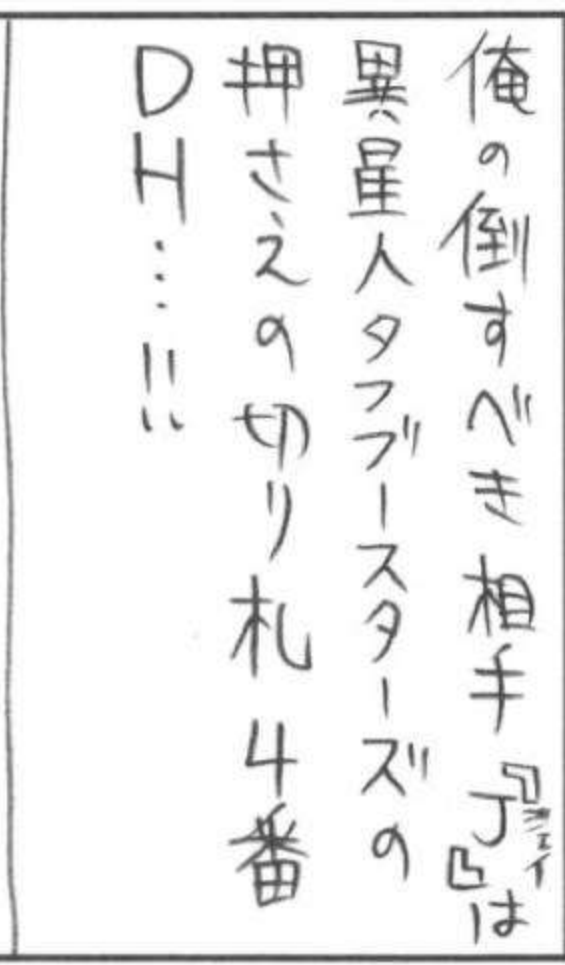 俺の倒すべき相手『J』は
ジェイ
異星人タフブースターズの
押さえの切り札4番
DH…!!